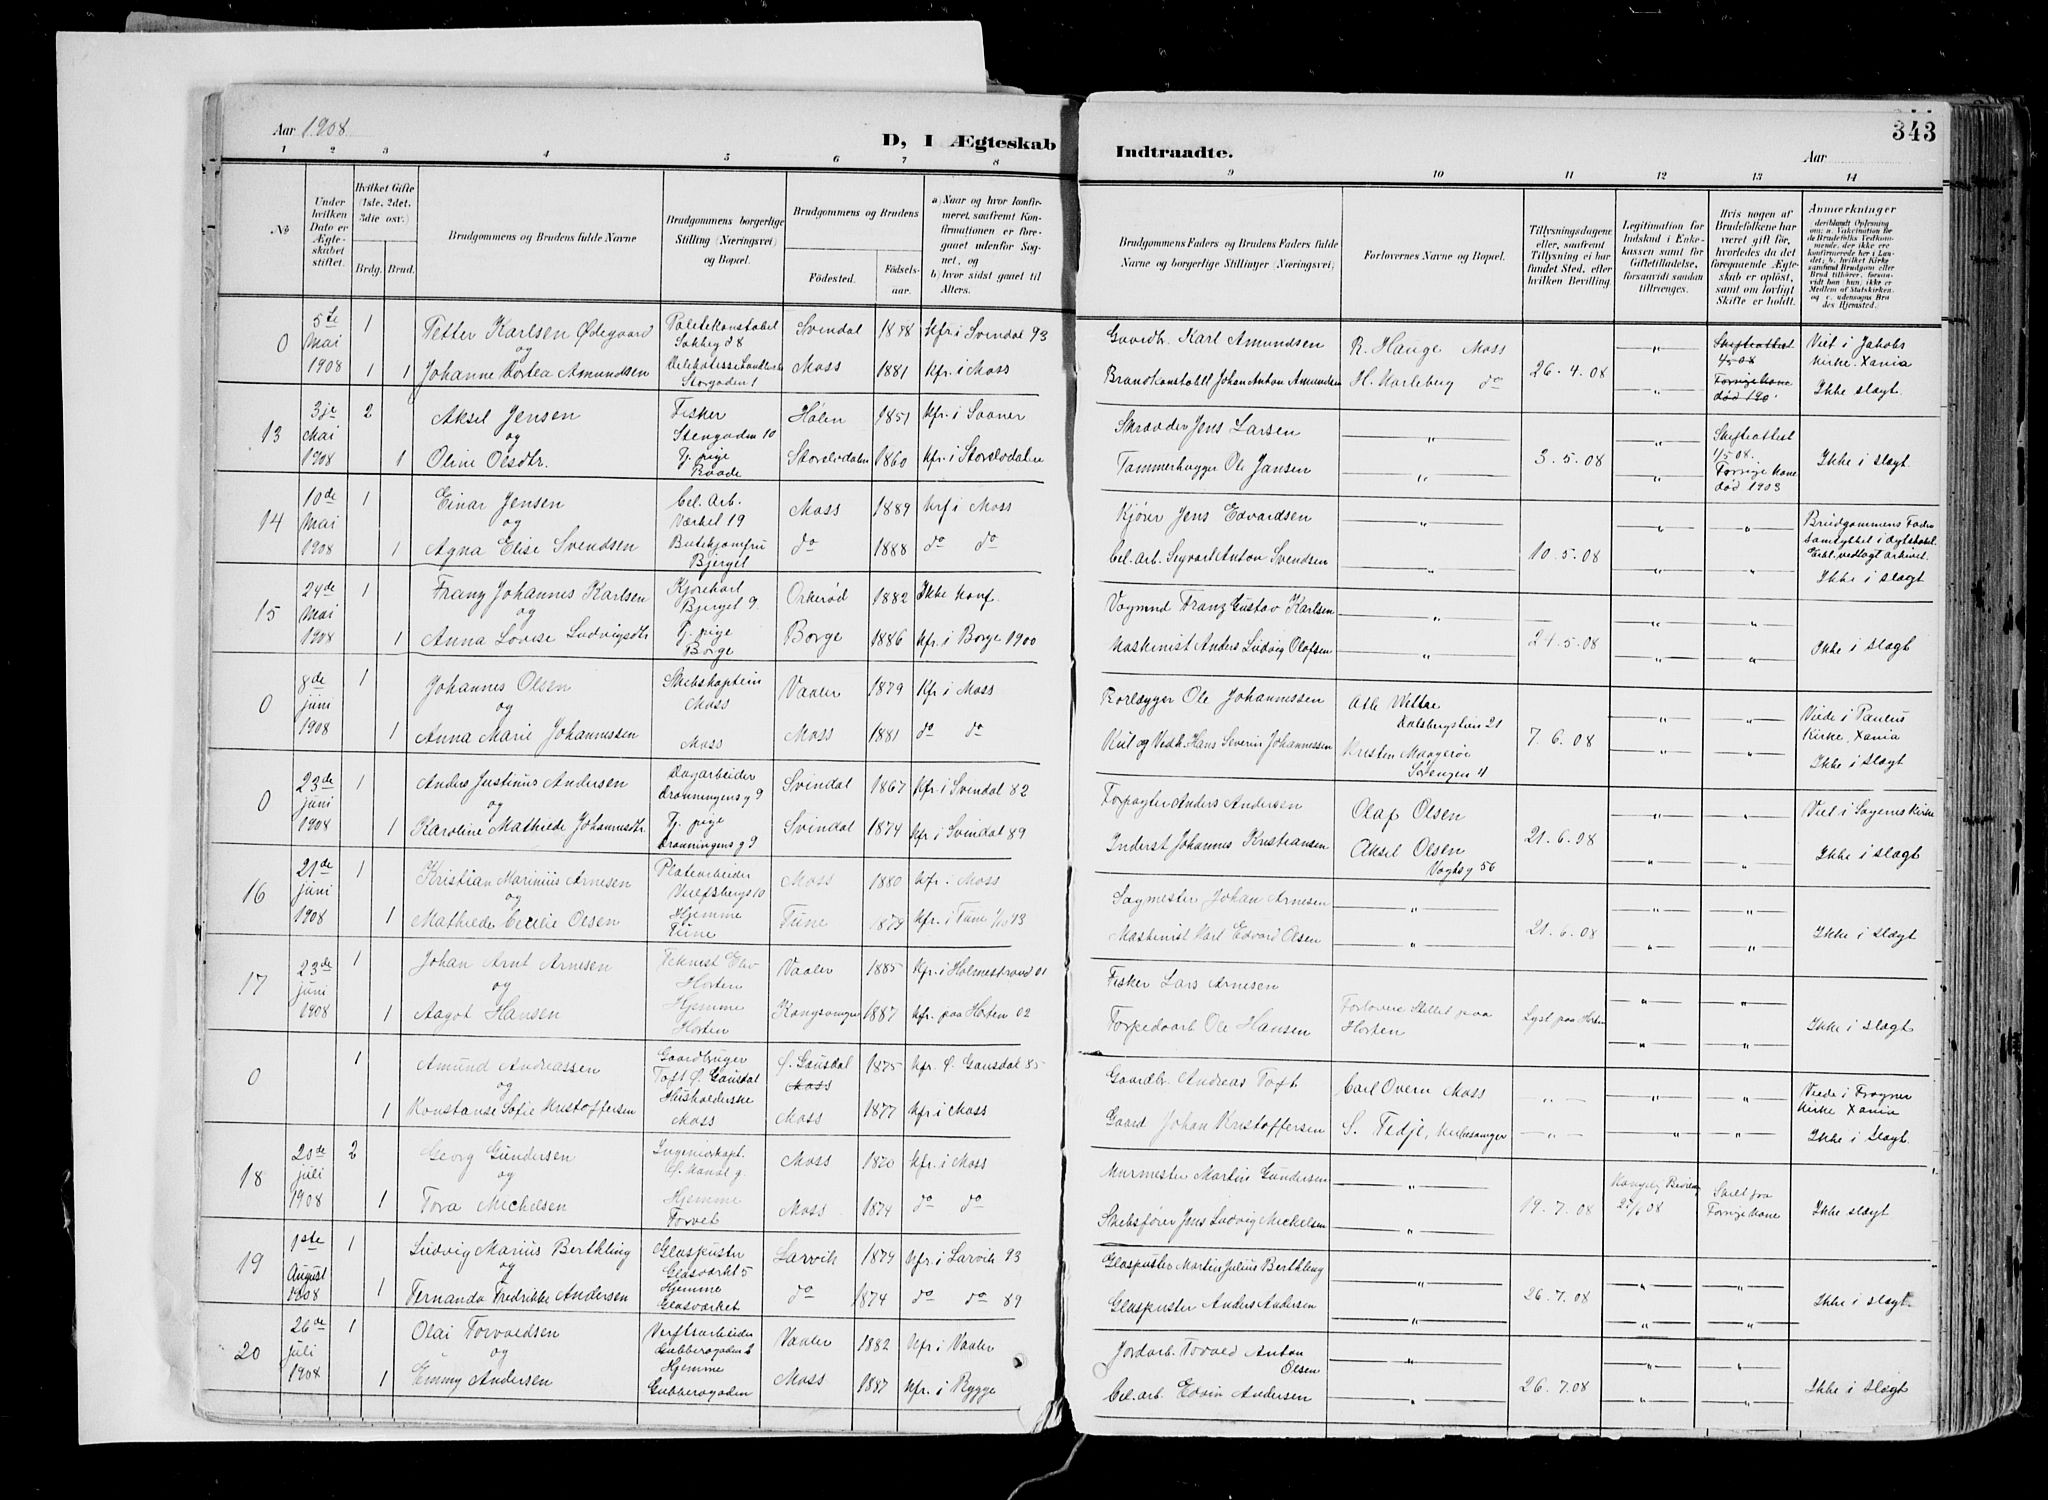 Aar 1908
D, I Ægteskab
Indtraadte.
343
Aar
1 2 3 4 5 6 7 8 9 10 11 12 13 14
No
Under hvilken Dato er Ægteskabet stiftet.
Hvilket Gifte (1ste, 2det, 3die osv.)
Brdg. Brud.
Brudgommens og Brudens fulde Navne
Brudgommens borgerlige Stilling (Næringsvei) og Bopæl.
Brudgommens og Brudens
Fødested.
Fødselsaar.
a) Naar og hvor konfirmeret, saafremt Konfirmationen er foregaaet udenfor Sognet, og
b) hvor sidst gaaet til Alters.
Brudgommens Faders og Brudens Faders fulde Navne og borgerlige Stillinger (Næringsvei)
Forlovernes Navne og Bopæl.
Tillysningsdagene eller, saafremt Tillysning ei har fundet Sted, efter hvilken Bevilling.
Legitimation for Indskud i Enkekassen samt for Giftetilladelse, forsaavidt saadan tiltrænges.
Hvis nogen af Brudefolkene har været gift før, hvorledes da det foregaaende Ægteskab er opløst, samt om lovligt Skifte er holdt.
Anmærkninger
0 5te Mai 1908 1 Petter Karlsen Ødegaard Politikonstabel Svindal 1878 Kfr i Svindal 93 Gaardb. Karl Amundsen R. Hauge Moss 26-4-08 " Skifteattest Viet i Jakobs Kirke. Xania
og
1 1 Johanne Dortea Amundsen Storgaden 1 Moss 1881 Kfr. i Moss Brandkonstabel Johan Anton Amundsen H. Karleberg do " Forrige Kone død 190 Ikke slægt.
13 3je Mai 1908 2 Aksel Jensen Fisker Stengaden 10 Hølen 1851 Kfr. i Saaner Skrædder Jens Larsen " 3.5.08 " Skifteattest 1/5 08. Forrige Kone død 1903 Ikke i slægt.
og
1 Oline Olsdtr. Tj. pige Raade 1860 Tømmerhugger Ole Jansen " "
14 10de Mai 1908 1 Einar Jensen Cel. Arb. Værket 19 Moss 1889 Krf i Moss Kjører Jens Edvardsen " 10.5.08 " " Brudgommens Fader
og
1 Agna Elise Svendsen Bjerget do 1888 do do Cel. Arb. Sigvart Anton Svendsen " " " Ikke i slægt
15 24de Mai 1908 1 Franz Johannes Karlsen Kjørekarl Bjerget 9. Orkerød 1882 Ikke konf. Vognmd Franz Gustav Karlsen " 24.5.08 " "
og
1 Anna Lovise Ludvigsdtr Tj. pige Borge Borge 1886 Kfr. i Borge 1900 Maskinist Anders Ludvig Olafsen " " " Ikke i slægt
0 8de juni 1908 1 Johannes Olsen Skibskaptein Moss Vaaler 1879 Kfr i Moss Rorlægger Ole Johannessen 21 7.6.08 " " Viede i Paulus Kirke, Xania
og
1 Anna Marie Johannessen Moss Moss 1881 do do Kul og Vedh. Hans Severin Johannessen Kristen Sørengen 4 " " Ikke i slægt
0 23de juni 1908 1 Anders Justinius Andersen Dagarbeider Dronningens g 9 Svindal 1867 Kfr. i Svindal 82 Forpagter Anders Andersen Olaf Olsen 21.6.08 " " Viet i Sagenes Kirke
og
1 Karoline Mathilde Johannesdtr Tj. pige Dronningens g 9 Svindal 1874 Kfr i Svindal 89 Inderst Johannes Kristiansen Aksel Olsen Vogtsg 56 " " Ikke i slægt
16 21de juni 1908 1 Kristian Marinius Arnesen Platearbeider Moss 1880 Kfr. i Moss Sagmester Johan Arnesen " 21.6.08 " "
og
1 Mathilde Cecilie Olsen Hjemme Tune Tune 1879 Kfr. i Tune Maskinist Karl Edvard Olsen " " " Ikke i slægt
17 23de juni 1908 1 Johan Arnt Arnesen Horten Vaaler 1885 Kfr. i Holmestrand 01 Fisker Lars Arnesen Forlovere Stillet paa Horten Lyst paa Horten " "
og
1 Aagot Hansen Hjemme Horten 1887 Kfr. paa Horten 02 Torpedoarb Ole Hansen " " Ikke i slægt
0 1 Amund Andreassen Gaardbruger Toft Ø. Gausdal Ø. Gausdal Moss 1875 Kfr. Ø. Gausdal 85 Gaardbr. Andreas Toft Carl Overn Moss " " " Viede i Frogner Kirke Xania
og
1 Konstanse Sofie Kristoffersen Husholderske Moss Moss 1877 Kfr i Moss Gaard Johan Kristoffersen S. Tedje, " " " Ikke i slægt.
18 20de juli 1908 2 Georg Gundersen Moss 1870 Kfr. i Moss Murmester Martin Gundersen " 19.7.08 Kongelig Bevilling Skilt fra Forrige Kone
og
1 Tora Michelsen Hjemme Torvet Moss 1874 do do Skibsfører Jens Ludvig Michelsen " Ikke slægt
19 1ste August 1908 1 Ludvig Marius Berthling Glaspuster Glasværket 5 Larvik 1874 Kfr i Larvik 93 Glaspuster Martin Julius Berthling " 26.7.08 " "
og
1 Fernanda Fredrikke Andersen Hjemme Glasværket do 1874 do do 89 Glaspuster Anders Andersen " " " Ikke i slægt.
20 26de juli 1908 1 Olai Torvaldsen Verftsarbeider Gubberogaden 2 Vaaler 1882 Kfr i Vaaler Jordarb. Torvald Anton Olsen " 26.7.08 " "
og
1 Emmy Andersen Hjemme Gubberogaden Moss 1887 Kfr. i Rygge Cel. arb. Edvin Andersen " " " Ikke i slægt